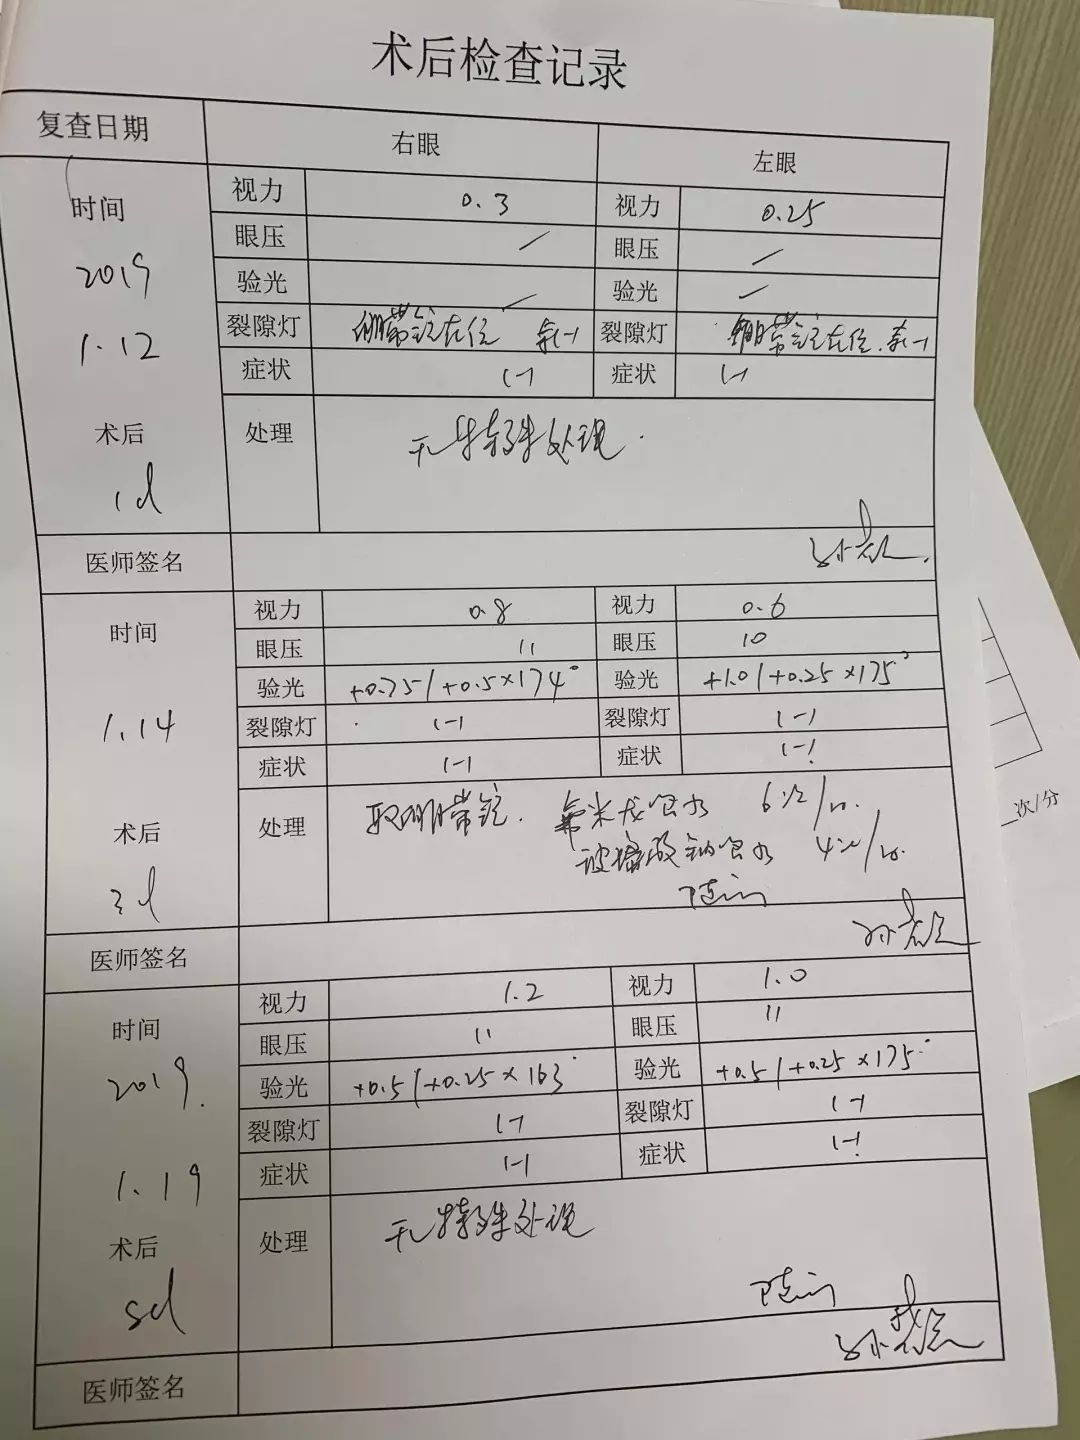 术后检查记录
复查日期 右眼 左眼
时间 视力 0.3 视力 0.25
2019 眼压 / 眼压 /
验光 / 验光 /
1.12 裂隙灯 绷带镜在位 余(-) 裂隙灯 绷带镜在位.余(-)
症状 (-) 症状 (-)
术后 处理 无特殊处理.
1d
医师签名
时间 视力 0.8 视力 0.6
眼压 11 眼压 10
验光 +0.75/+0.5×174° 验光 +1.0/+0.25×175°
1.14 裂隙灯 (-) 裂隙灯 (-)
症状 (-) 症状 (-)
术后 处理 取绷带镜. 氟米龙眼水 6次/日.
3d 玻璃酸钠眼水 4次/日.
随访
医师签名
次/分
时间 视力 1.2 视力 1.0
眼压 11 眼压 11
2019. 验光 +0.5/+0.25×163° 验光 +0.5/+0.25×175°
裂隙灯 (-) 裂隙灯 (-)
1.19 症状 (-) 症状 (-)
术后 处理 无特殊处理
随访
医师签名